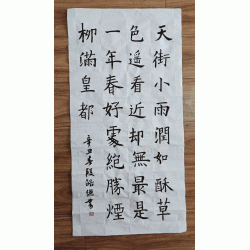 天街小雨潤如酥草
色遥看近却無最是
一年春好處絕勝煙
柳滿皇都
辛丑春段